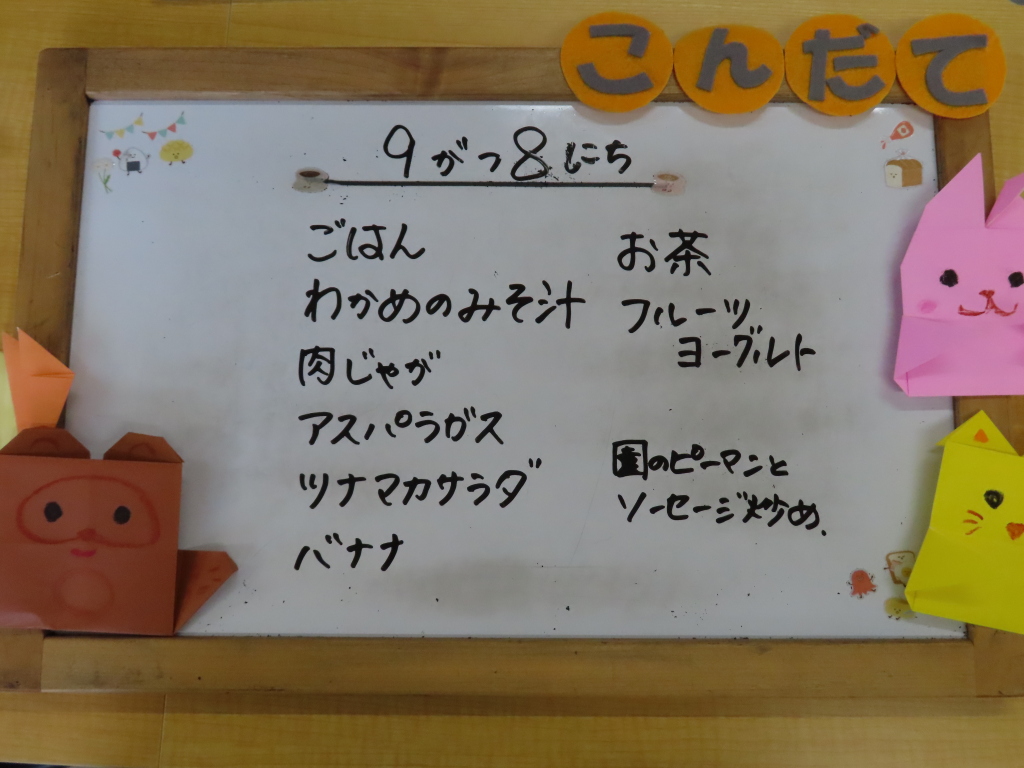 こんだて
9がつ8にち
ごはん
わかめのみそ汁
肉じゃが
アスパラガス
ツナマカサラダ
バナナ
お茶
フルーツ
ヨーグルト
園のピーマンと
ソーセージ炒め.